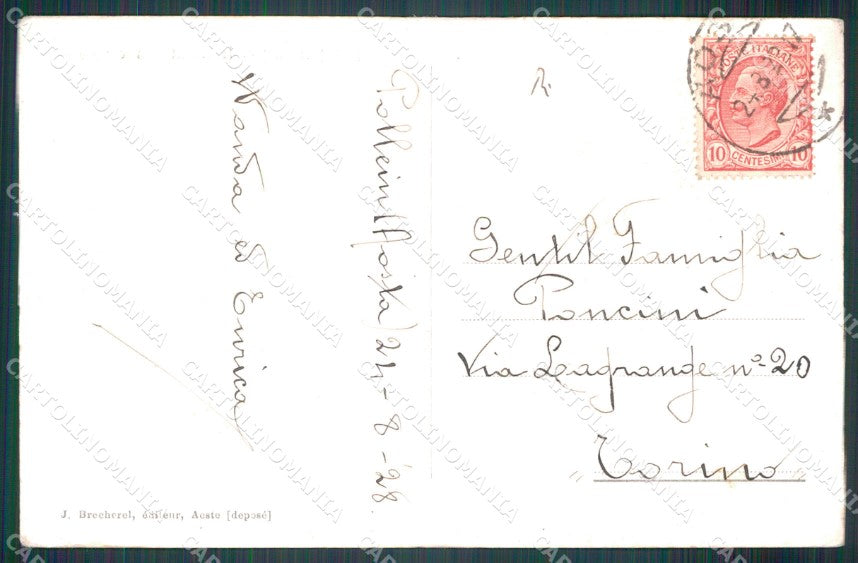 Pollein (Aosta) 24-8-'28
Wanda ed Enrica
Gentil Famiglia
Poncini
Via Lagrange n° 20
Torino
POSTE ITALIANE
10 CENTESIMI 10
J. Brecherel, éditeur, Aoste [deposé]
CARTOLINOMANIA